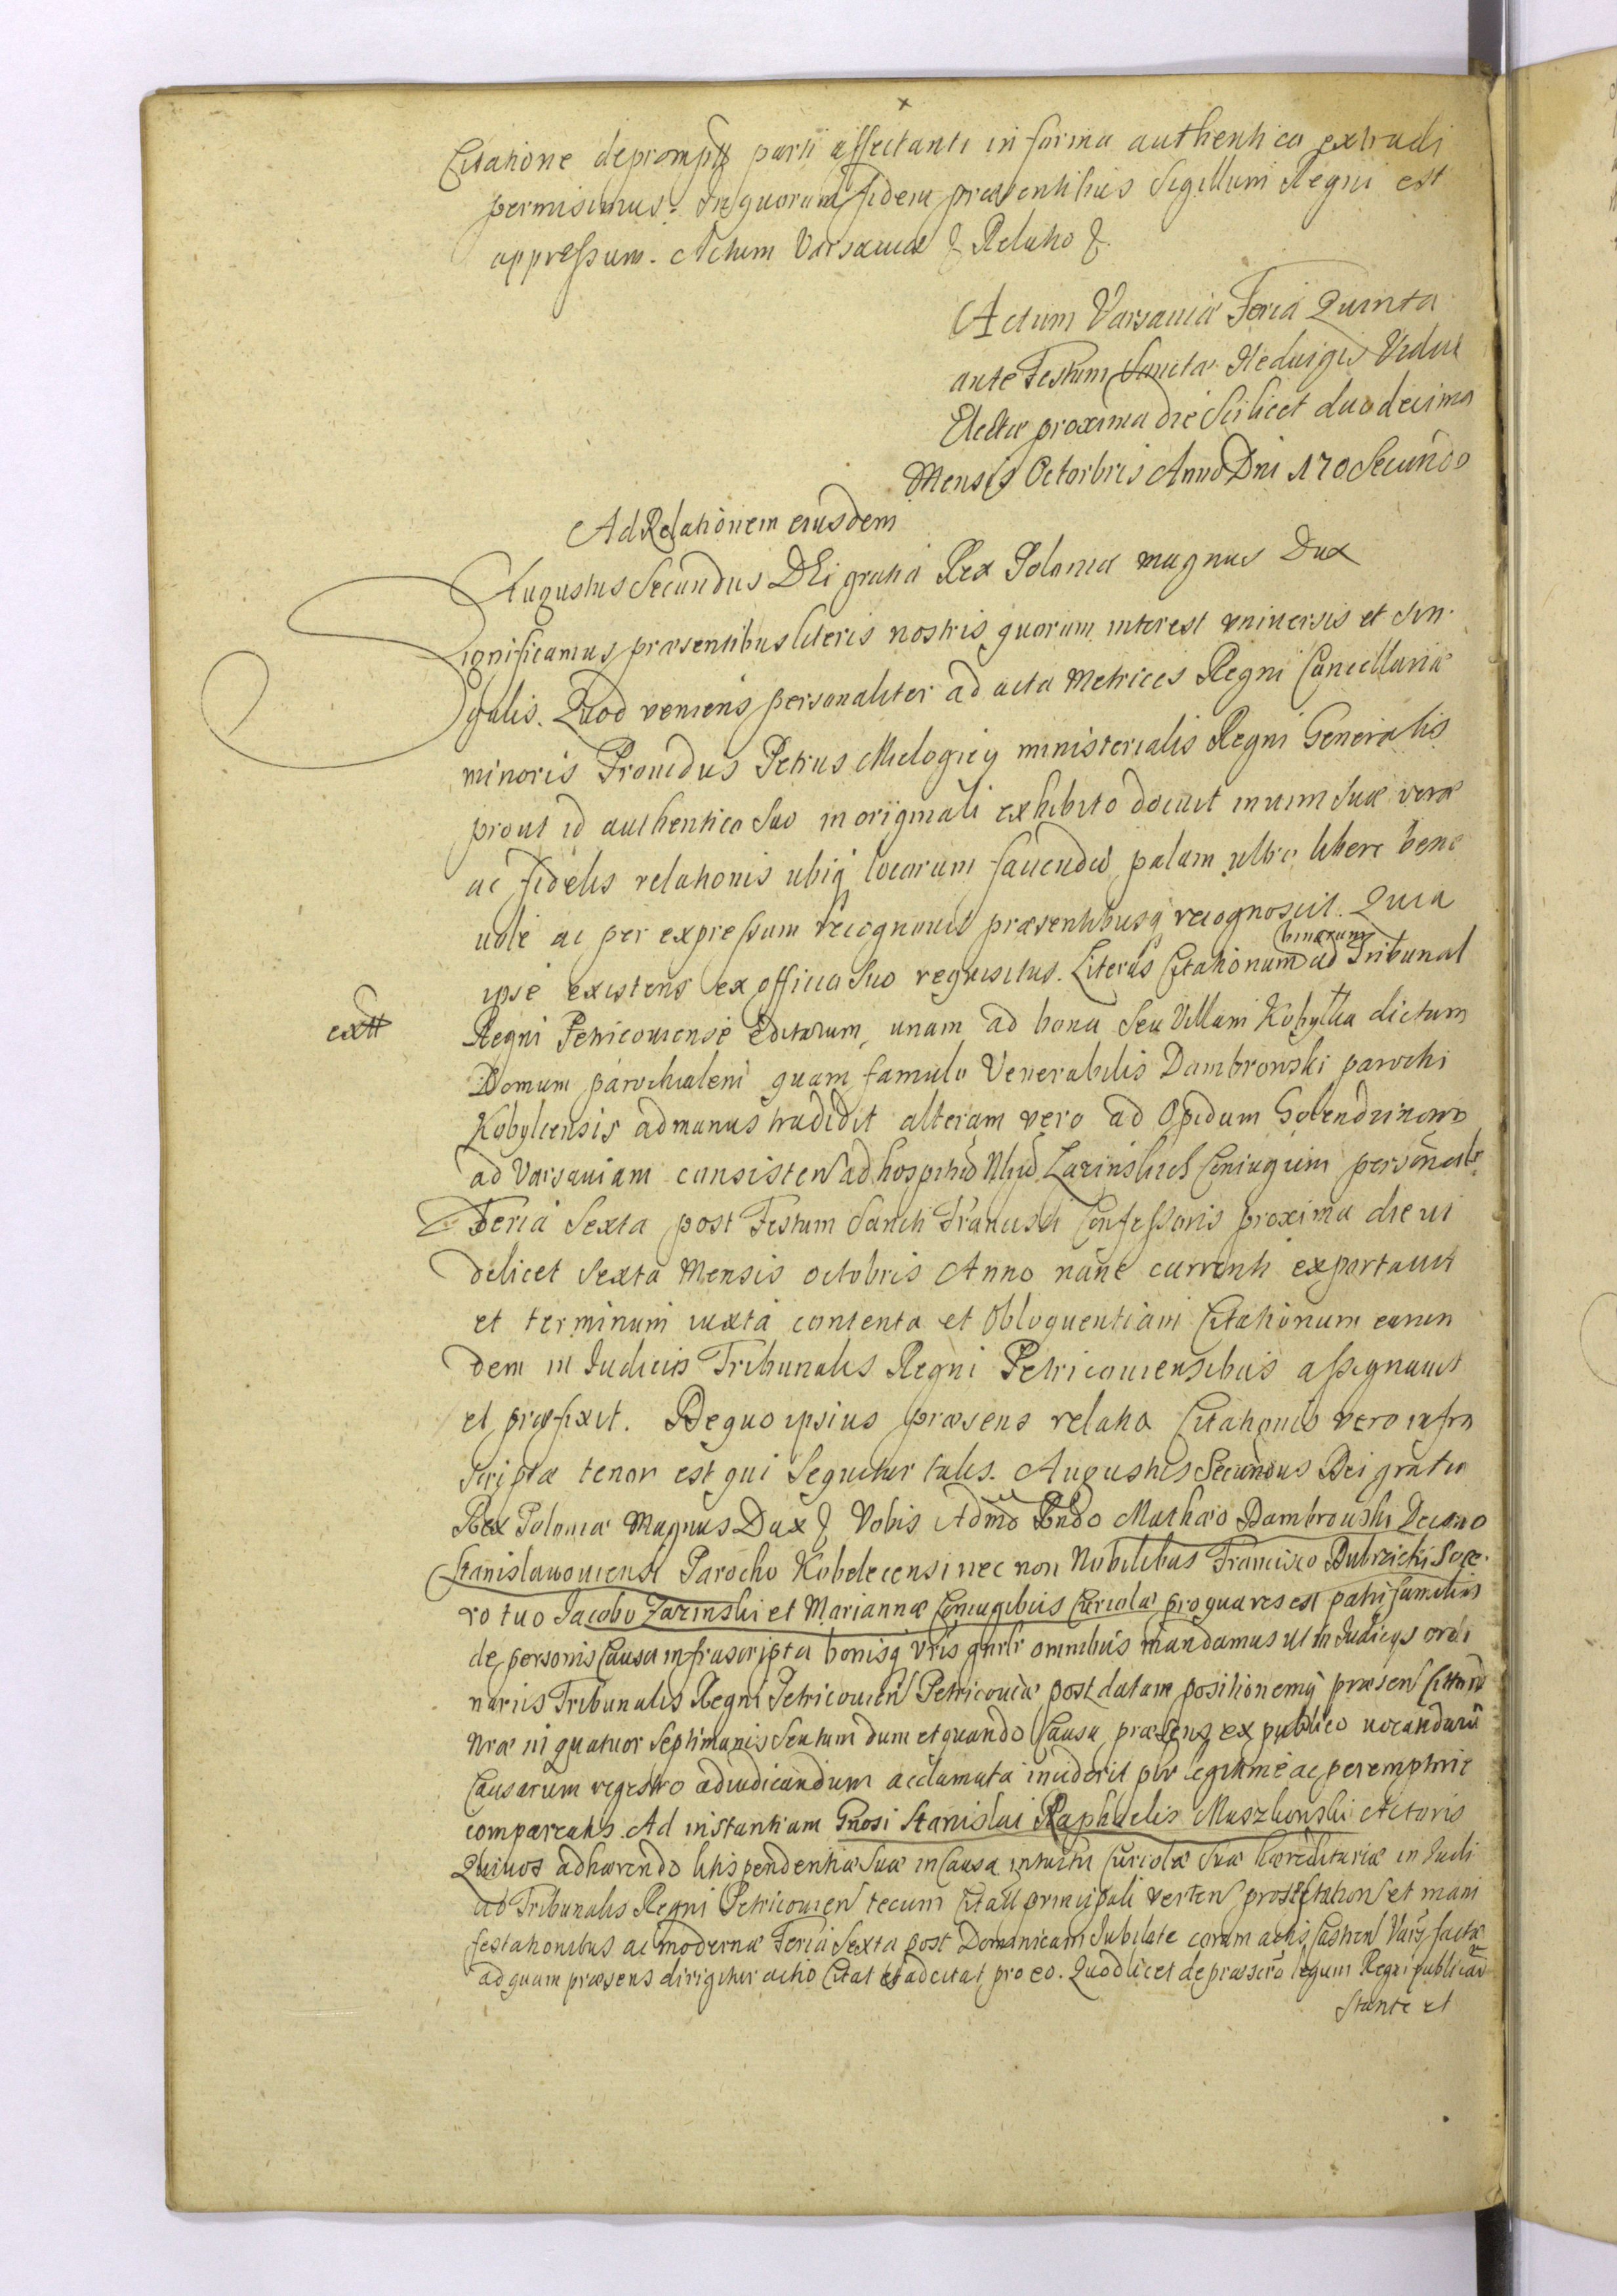 Citatione deprompt parti affectanti in forma authentica extradi
permisimus. In quorum fidem præsentibus Sigillum Regni est
appressum. Actum Varsaviæ & Relatio &.
Actum Varsaviæ Feria Quinta
ante Festum Sanctæ Heduigis Viduæ
Electæ proxima die Scilicet duodecima
Mensis Octorbris Anno Dni 170 Secundo
Ad Relationem eiusdem
Augustus Secundus DEi gratia Rex Poloniæ magnus Dux
Significamus præsentibus literis nostris quorum interest vniuersis et sin
gulis. Quod veniens personaliter ad acta Metrices Regni Cancellariæ
minoris Prouidus Petrus ministerialis Regni Generalis
prout id authentico Suo in originali exhibito docuit in uim Suæ veræ
ac fidelis relationis ubiq locorum fauendo palam ultro libere bene
uole ac per expressum recognouit præsentibusq recognoscit. Quia
ipse existens ex officio Suo requisitus. Literas Citationum binarum ad Tribunal
extt
Regni Petricouiense Editarum, unam ad bona Seu Villam Kobylka dictum
Domum parochialem quam famulo Venerabilis Dambrowski parochi
Kobylcensis ad manus tradidit alteram vero ad Opidum Golendzinowo
ad Varsauiam consisten ad hospitiũ Nliũ Lazinskich Coniugum personalr
Feria Sexta post Festum Sancti Francisci Confessoris proxima die ui
delicet Sexta Mensis octobris Anno nunc currenti exportauit
et terminum iuxta contenta et Obloquentiam Citationum earun
dem in Iudiciis Tribunalis Regni Petricouiensibus assignauit
et præfixit. De quo ipsius præsens relatio Citationis vero infra
scriptæ tenor est qui Sequitur talis. Augustus Secundus Dei gratia
Rex Poloniæ Magnus Dux & Vobis Admo Rndo Mathæo Dambrowski Decano
Stanislawouiensi Parocho Kobelecensi nec non Nobilibus Francisco Dubrzicki Soce
ro tuo Jacobo Lazinski et Mariannæ Coniugibus Curiolæ pro qua res est patri familias
de personis Causa infrascripta bonisq vris gnrlr omnibus mandamus ut in Iudicys ordi
nariis Tribunalis Regni Petricouien Petricouiæ post datam positionemq præsen
Nræ in quatuor Septimanis Seu tum dum et quando Causa præsens ex publico uocandarũ
Causarum regestro ad iudicandum acclamata inciderit plr legitime ac peremptorie
compareatis. Ad instantiam Gnosi Stanislai Raphaelis Muszkowski Actoris
Qui uos adhærendo litis pendentiæ Suæ in Causa intuitu Curiolæ Suæ hæreditariæ in Iudi
ad Tribunalis Regni Petricouien tecum Citato principali verten et mani
festationibus ac modernæ Feria Sexta post Dominicam Iubilate coram actis Castren Vars factæ
ad quam præsens dirigitur actio Citat et adcitat pro eo. Quod licet de præscro legum Regni publicarũ
Stante et